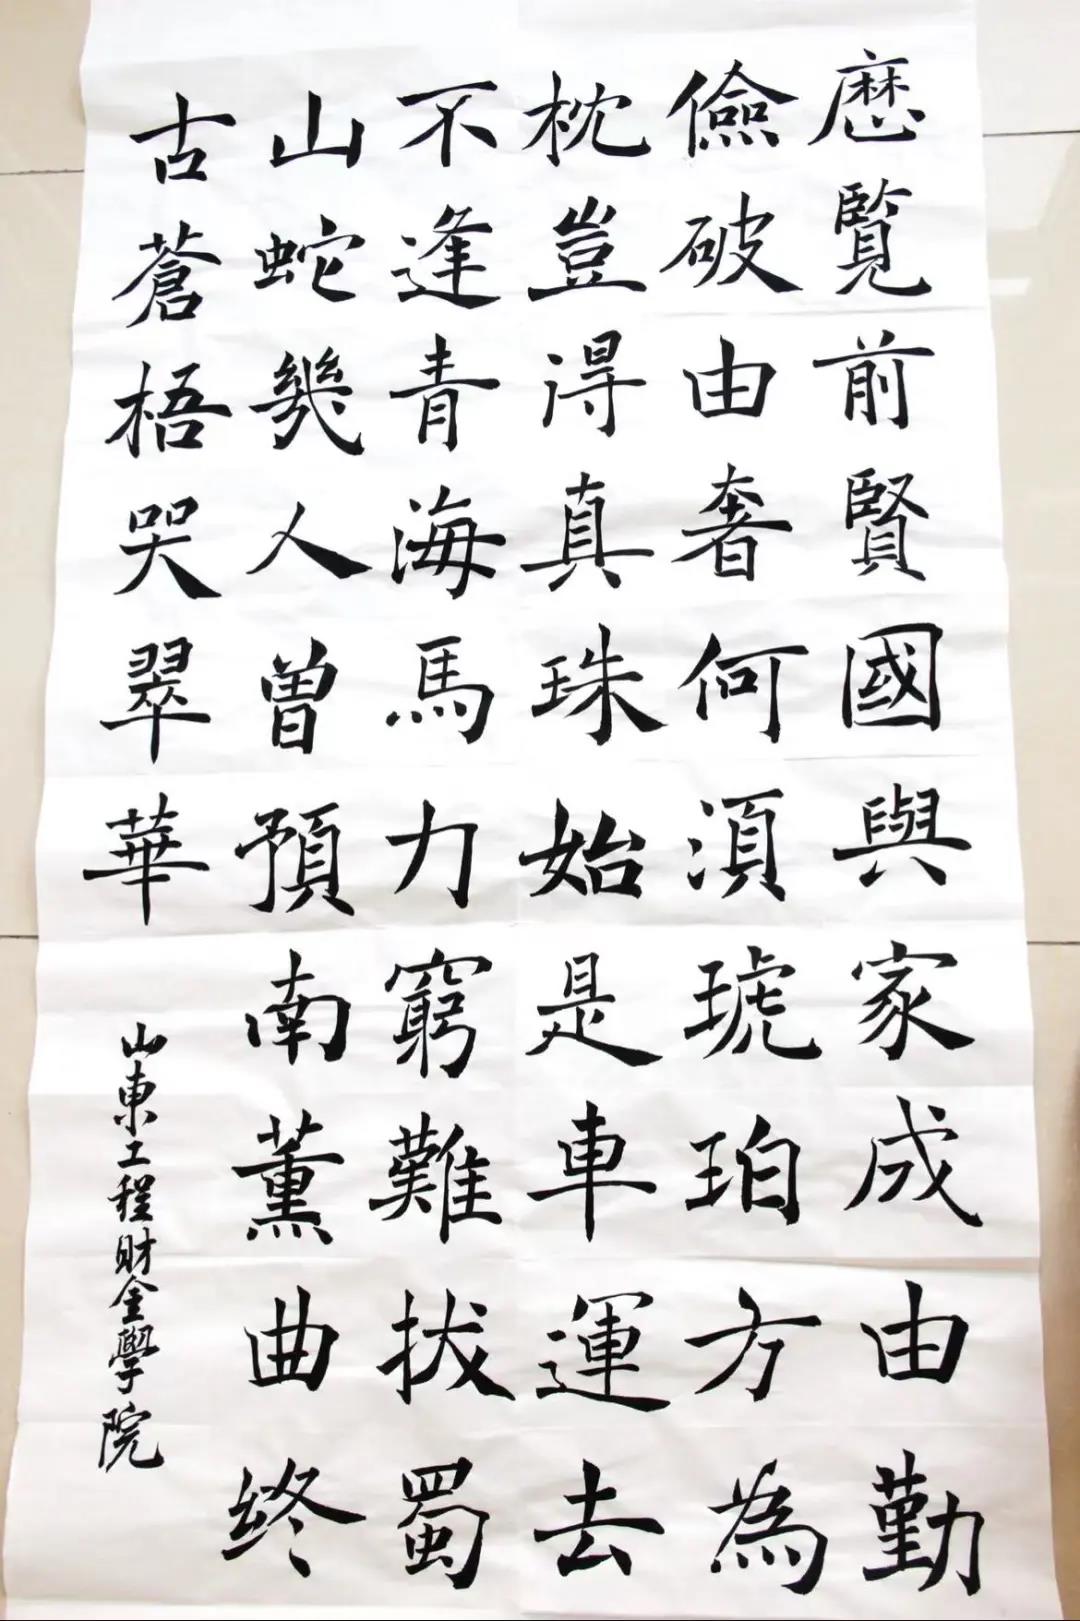 歷覽前賢國與家成由勤
儉破由奢何湏琥珀方為
枕豈得真珠始是車運去
不逢青海馬力窮難拔蜀
山蛇幾人曾預南薰曲終
古蒼梧哭翠華
山東工程財金學院